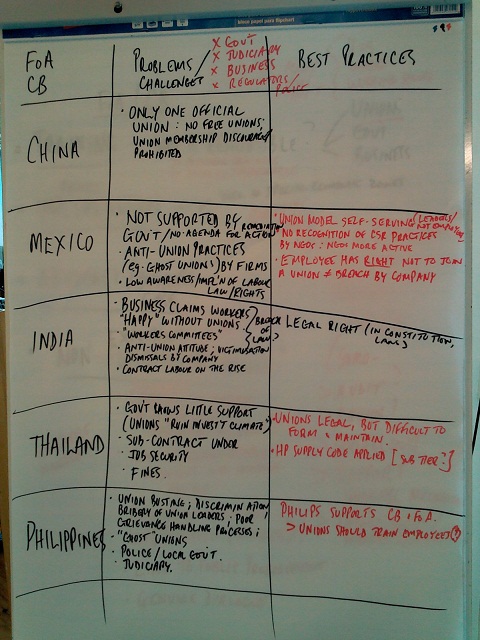 FOA
CB
PROBLEMS/
CHALLENGES
x GOV'T
x JUDICIARY
x BUSINESS
x REGULATORS/
POLICE
BEST PRACTICES
CHINA
· ONLY ONE OFFICIAL
UNION: NO FREE UNIONS;
UNION MEMBERSHIP DISCOURAGED/
PROHIBITED
MEXICO
· NOT SUPPORTED BY
GOV'T/NO AGENDA FOR REMEDIATION ACTION
· ANTI-UNION PRACTICES
(eg. GHOST UNIONS) BY FIRMS
· LOW AWARENESS/IMPL'N OF LABOUR
LAW/RIGHTS
· UNION MODEL SELF-SERVING (LEADERS/
NOT EMPLOYEES)
· NO RECOGNITION OF CSR PRACTICES
BY NGOS: NGOS MORE ACTIVE
· EMPLOYEE HAS RIGHT NOT TO JOIN
A UNION ≠ BREACH BY COMPANY
INDIA
· BUSINESS CLAIMS WORKERS
"HAPPY" WITHOUT UNIONS
· "WORKERS COMMITTEES"
BREACH
OF
LAW?
· ANTI-UNION ATTITUDE; VICTIMISATION
DISMISSALS BY COMPANY
· CONTRACT LABOUR ON THE RISE
LEGAL RIGHT (IN CONSTITUTION,
LAWS)
THAILAND
· GOV'T SHOWS LITTLE SUPPORT
(UNIONS "RUIN INVEST'T CLIMATE")
· SUB-CONTRACT UNDER
· JOB SECURITY
· FINES.
· UNIONS LEGAL, BUT DIFFICULT TO
FORM & MAINTAIN.
· HP SUPPLY CODE APPLIED [SUB TIER?]
PHILIPPINES
· UNION BUSTING; DISCRIMINATION/
BRIBERY OF UNION LEADERS; POOR
GRIEVANCE HANDLING PROCESSES;
· "GHOST" UNIONS
· POLICE/LOCAL GOV'T.
· JUDICIARY.
PHILIPS SUPPORTS CB & FOA.
> UNIONS SHOULD TRAIN EMPLOYEES (?)